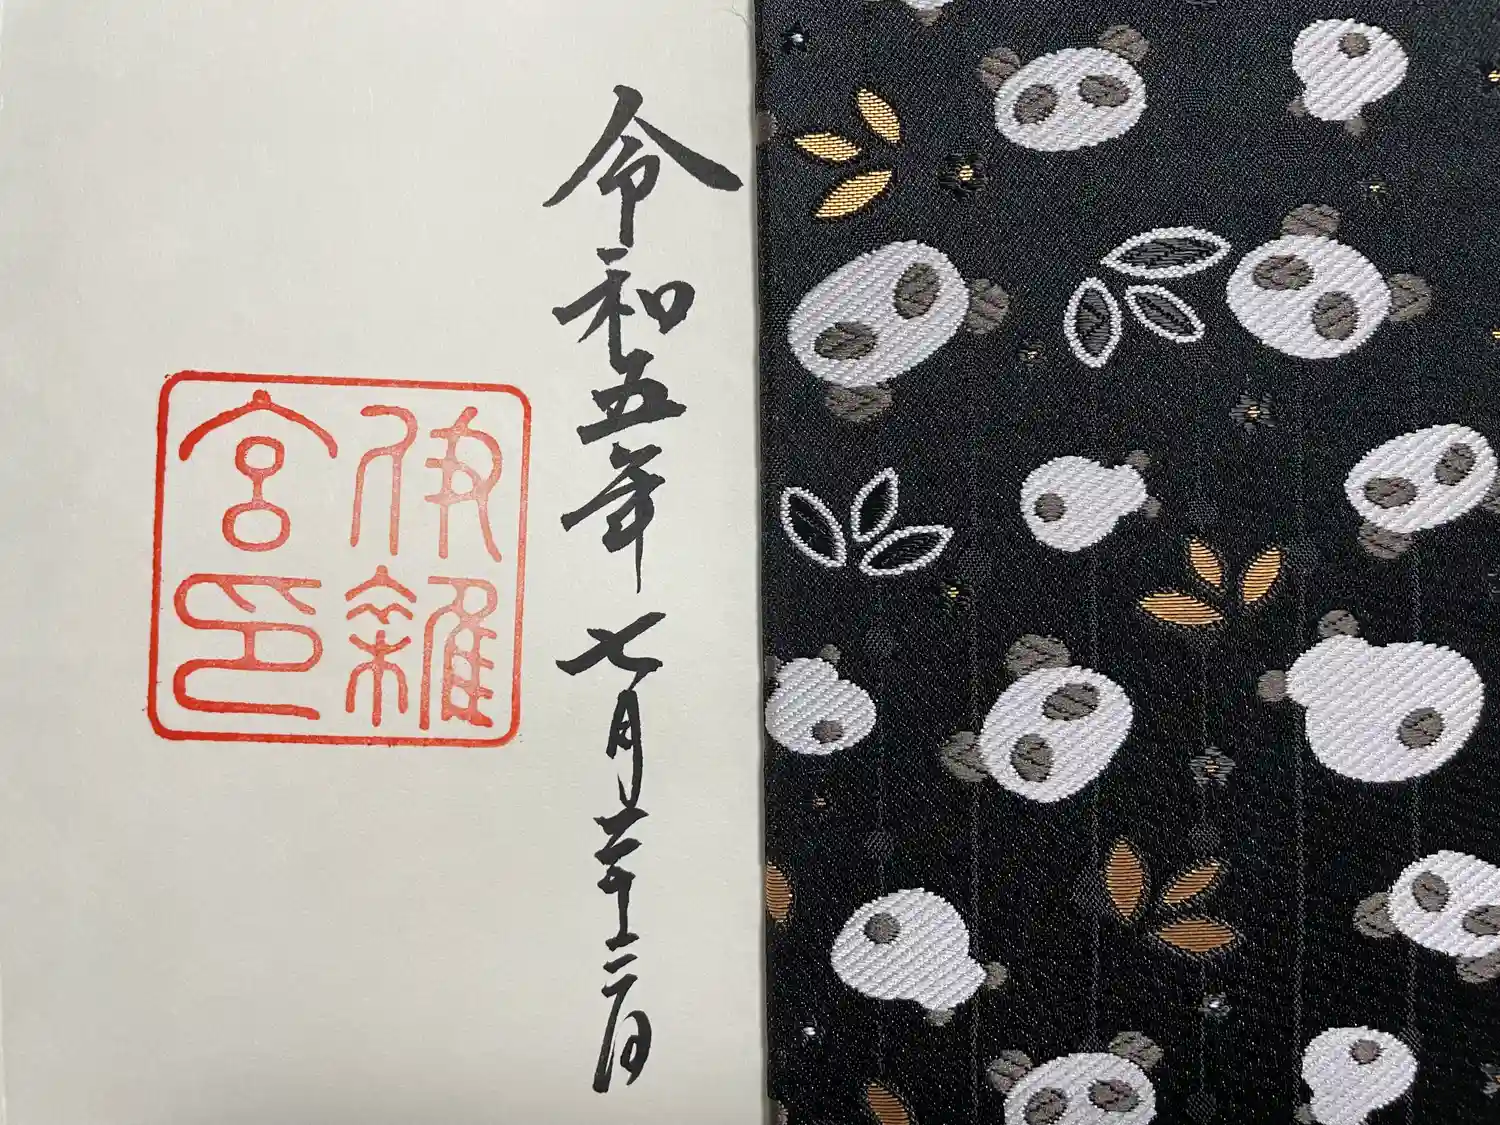 令和五年七月二十二日
伊雜
宮印